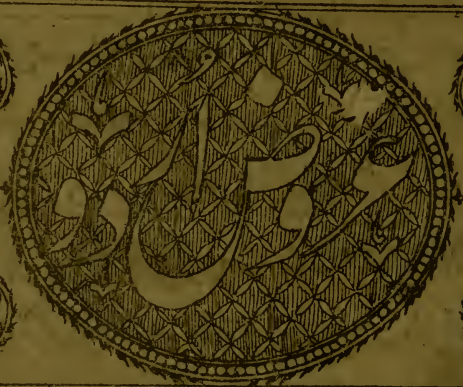 عروض اردو